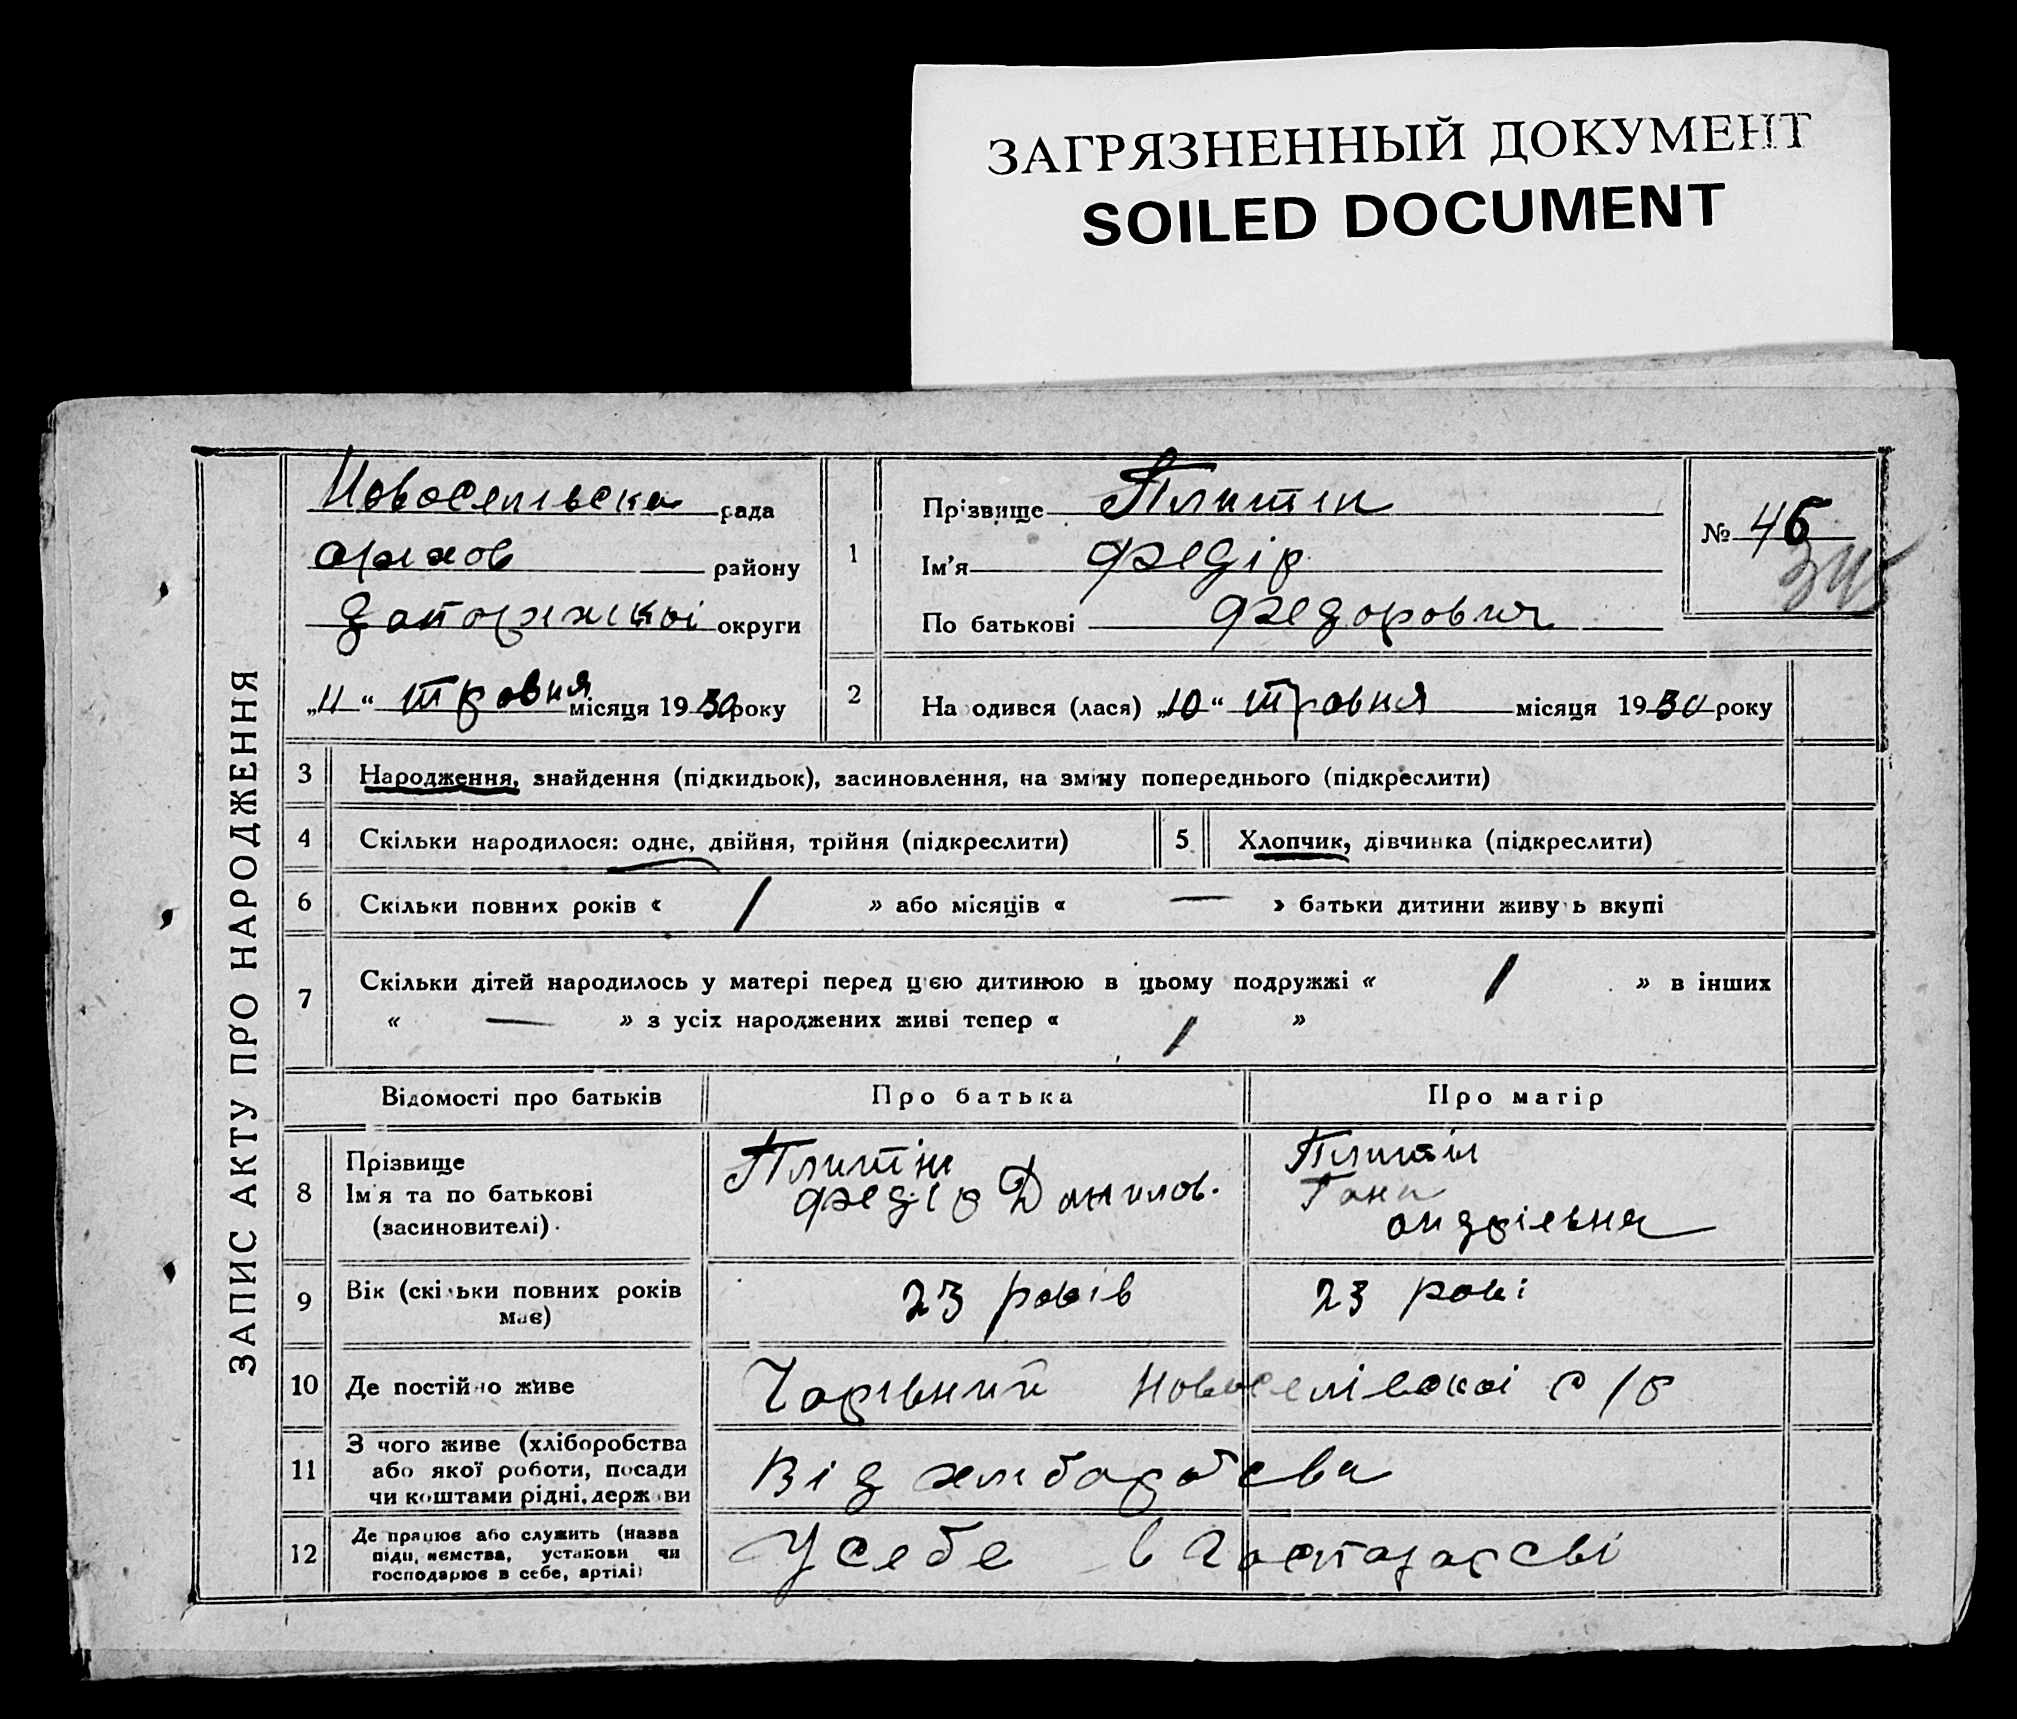 ЗАГРЯЗНЕННЫЙ ДОКУМЕНТ
SOILED DOCUMENT
ЗАПИС АКТУ ПРО НАРОДЖЕННЯ
рада
району
округи
„11“ травня місяця 1930 року
1
Прізвище Плитін
Ім'я Федір
По батькові Федорович
№ 45
2
Народився (лася) „10“ травня місяця 1930 року
3 Народження, знайдення (підкидьок), засиновлення, на зміну попереднього (підкреслити)
4 Скільки народилося: одне, двійня, трійня (підкреслити)
5 Хлопчик, дівчинка (підкреслити)
6 Скільки повних років « 1 » або місяців « — » батьки дитини живуть вкупі
7 Скільки дітей народилось у матері перед цією дитиною в цьому подружжі « 1 » в інших
« — » з усіх народжених живі тепер « 1 »
Відомості про батьків Про батька Про матір
8 Прізвище
Ім'я та по батькові
(засиновителі)
Плитін
Федір Данилов.
Плитін
Гана
9 Вік (скільки повних років
має)
23 років
23 рокі
10 Де постійно живе
Чарівний Новоселівскоі с/р
11 З чого живе (хліборобства
або якої роботи, посади
чи коштами рідні, держави
Від
12 Де працює або служить (назва
підприємства, установи чи
господарює в себе, артілі)
У себе в